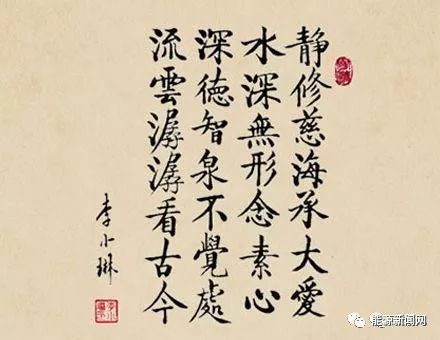 静修慈海承大愛
水深無形念素心
深徳智泉不覺處
流雲潺潺看古今
李小琳
能源新闻网